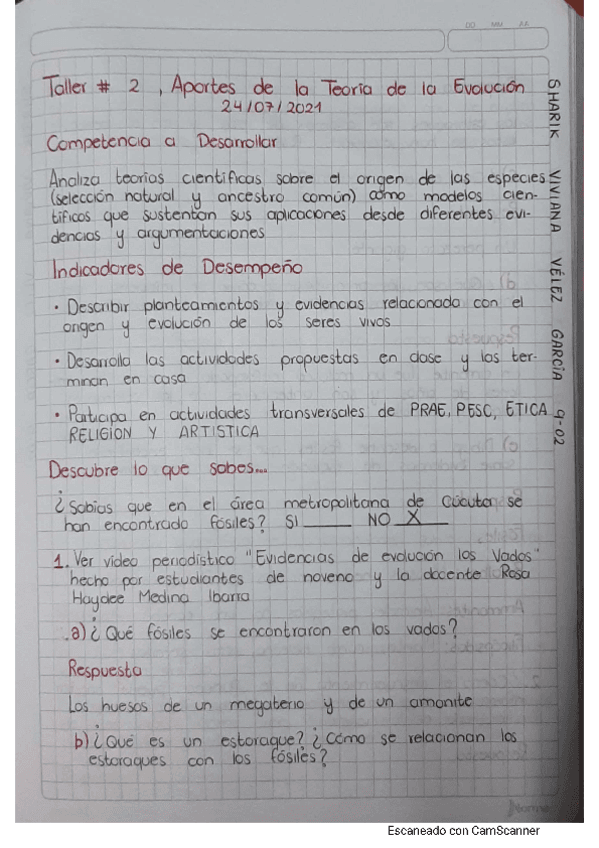 DD MM AA
Taller # 2, Aportes de la Teoría de la Evolución
24/07/2021
Competencia a Desarrollar
Analiza teorías científicas sobre el origen de las especies
(selección natural y ancestro común) como modelos cien-
tíficos que sustentan sus aplicaciones desde diferentes evi-
dencias y argumentaciones
Indicadores de Desempeño
• Describir planteamientos y evidencias relacionada con el
origen y evolución de los seres vivos
• Desarrolla las actividades propuestas en clase y las ter-
minan en casa
• Participa en actividades transversales de PRAE, PESC, ETICA
RELIGION Y ARTISTICA
Descubre lo que sabes...
¿Sabías que en el área metropolitana de Cúcuta se
han encontrado fósiles? SI ______ NO __X__
1. Ver video periodístico "Evidencias de evolución los Vados"
hecho por estudiantes de noveno y la docente Rosa
Haydee Medina Ibarra
.a) ¿Qué fósiles se encontraron en los vados?
Respuesta
Los huesos de un megaterio y de un amonite
b) ¿Qué es un estoraque? ¿Cómo se relacionan los
estoraques con los fósiles?
SHARIK VIVIANA VÉLEZ GARCÍA 9-02
Norma
Escaneado con CamScanner